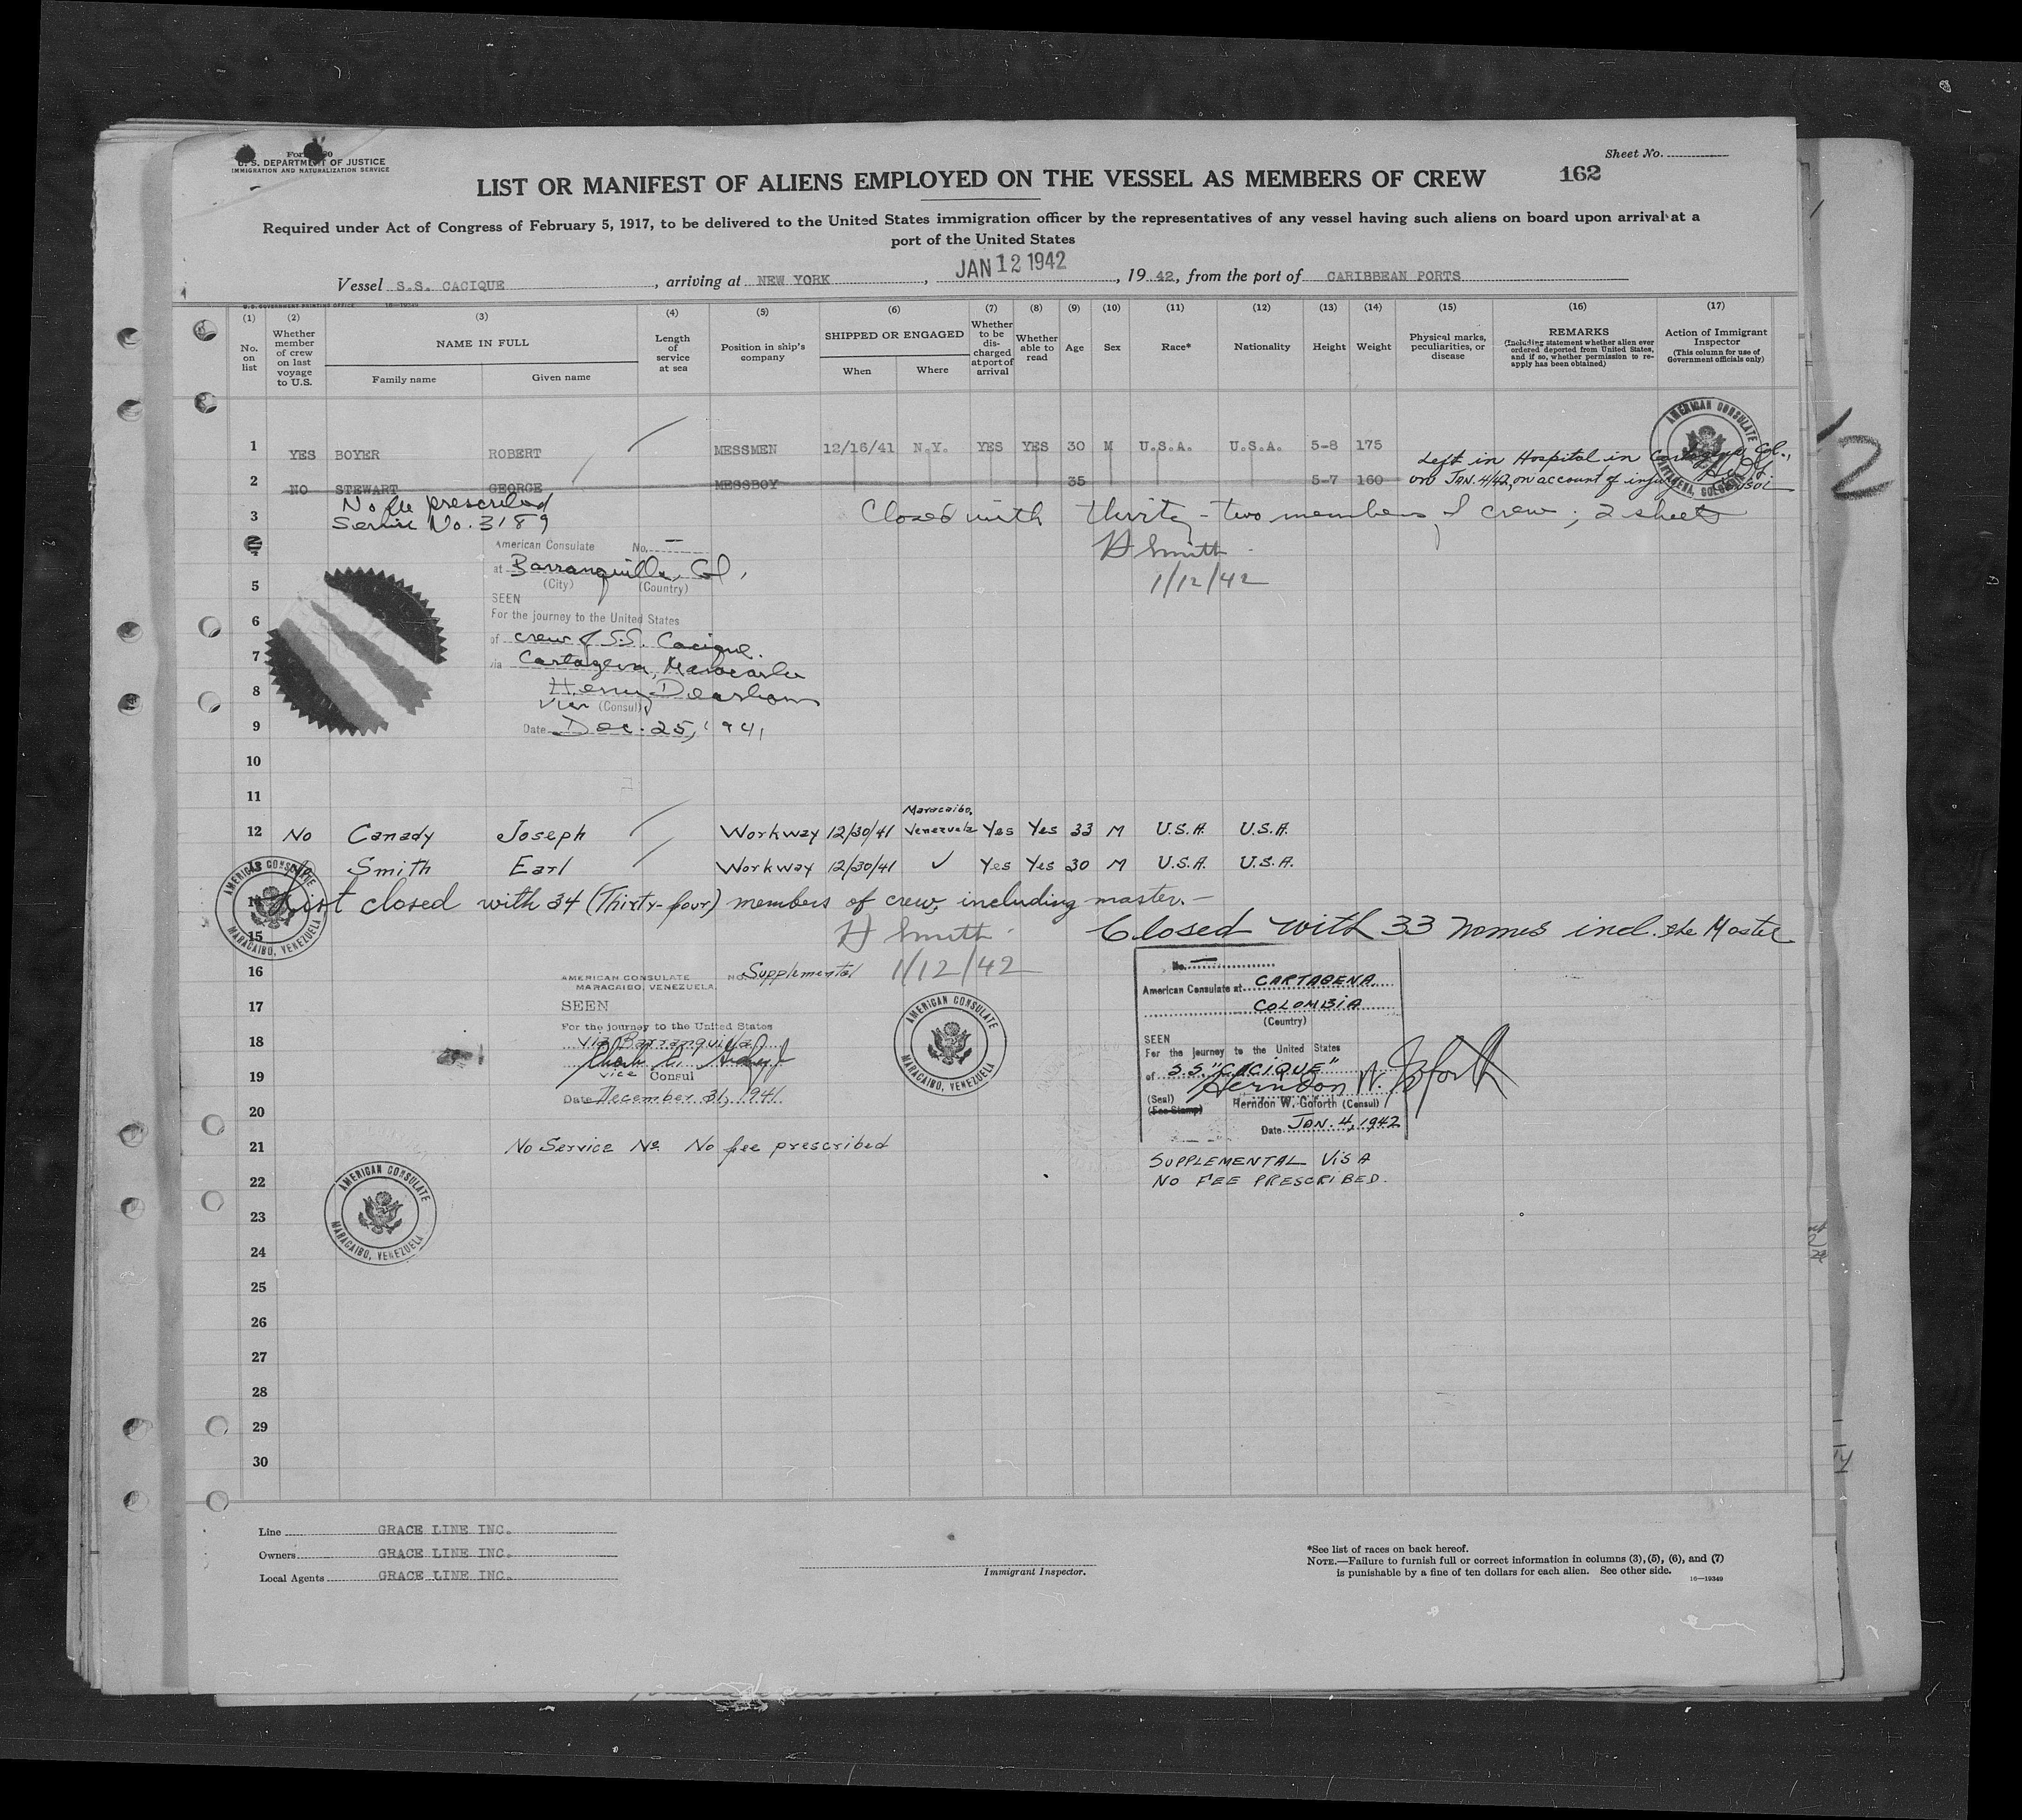 Form 
U. S. DEPARTMENT OF JUSTICE
IMMIGRATION AND NATURALIZATION SERVICE
Sheet No.
162
LIST OR MANIFEST OF ALIENS EMPLOYED ON THE VESSEL AS MEMBERS OF CREW
Required under Act of Congress of February 5, 1917, to be delivered to the United States immigration officer by the representatives of any vessel having such aliens on board upon arrival at a
port of the United States
Vessel S.S. CACIQUE, arriving at NEW YORK, JAN 12 1942, 19 42, from the port of CARIBBEAN PORTS
U.S. GOVERNMENT PRINTING OFFICE 16—19349
(1) No. on list
(2) Whether member of crew on last voyage to U.S.
(3) NAME IN FULL Family name Given name
(4) Length of service at sea
(5) Position in ship's company
(6) SHIPPED OR ENGAGED When Where
(7) Whether to be discharged at port of arrival
(8) Whether able to read
(9) Age
(10) Sex
(11) Race*
(12) Nationality
(13) Height
(14) Weight
(15) Physical marks, peculiarities, or disease
(16) REMARKS (Including statement whether alien ever ordered deported from United States, and if so, whether permission to reapply has been obtained)
(17) Action of Immigrant Inspector (This column for use of Government officials only)
1 YES BOYER ROBERT MESSMEN 12/16/41 N.Y. YES YES 30 M U.S.A. U.S.A. 5-8 175
AMERICAN CONSULATE CARTAGENA, COLOMBIA
Left in Hospital in Cartagena Col.,
2 NO STEWART GEORGE MESSBOY 35 5-7 160 on Jan. 4/42, on account of
3 No fee prescribed
Service No. 3189
Closed with thirty-two members of crew; 2 sheets
H Smith
1/12/42
4
American Consulate No. —
at Barranquilla, Col.
(City) (Country)
5
SEEN
6
For the journey to the United States
of crew of S.S. Cacique.
7
via Cartagena, Maracaibo
8
Henry Dearborn
Vice (Consul)
9
Date Dec. 25, 1941
10
11
Maracaibo,
12 No Canady Joseph Workway 12/30/41 Venezuela Yes Yes 33 M U.S.A. U.S.A.
13 No Smith Earl Workway 12/30/41 ✓ Yes Yes 30 M U.S.A. U.S.A.
AMERICAN CONSULATE MARACAIBO, VENEZUELA
14 List closed with 34 (Thirty-four) members of crew, including master.—
15
H Smith
1/12/42
Closed with 33 names incl. the Master
16
AMERICAN CONSULATE No. Supplemental
MARACAIBO, VENEZUELA.
17
SEEN
For the journey to the United States
18
via Barranquilla
19
Vice Consul
Date December 31, 1941
20
AMERICAN CONSULATE MARACAIBO, VENEZUELA
No. —
American Consulate at CARTAGENA
COLOMBIA
(Country)
SEEN
For the journey to the United States
of S.S. "CACIQUE"
Herndon W. Goforth
(Seal)
(Fee Stamp)
Herndon W. Goforth (Consul)
Date JAN. 4, 1942
21
No Service No. No fee prescribed
SUPPLEMENTAL VISA
NO FEE PRESCRIBED.
22
AMERICAN CONSULATE MARACAIBO, VENEZUELA
23
24
25
26
27
28
29
30
Line GRACE LINE INC.
Owners GRACE LINE INC.
Local Agents GRACE LINE INC.
Immigrant Inspector.
*See list of races on back hereof.
NOTE.—Failure to furnish full or correct information in columns (3), (5), (6), and (7)
is punishable by a fine of ten dollars for each alien. See other side.
16—19349
12